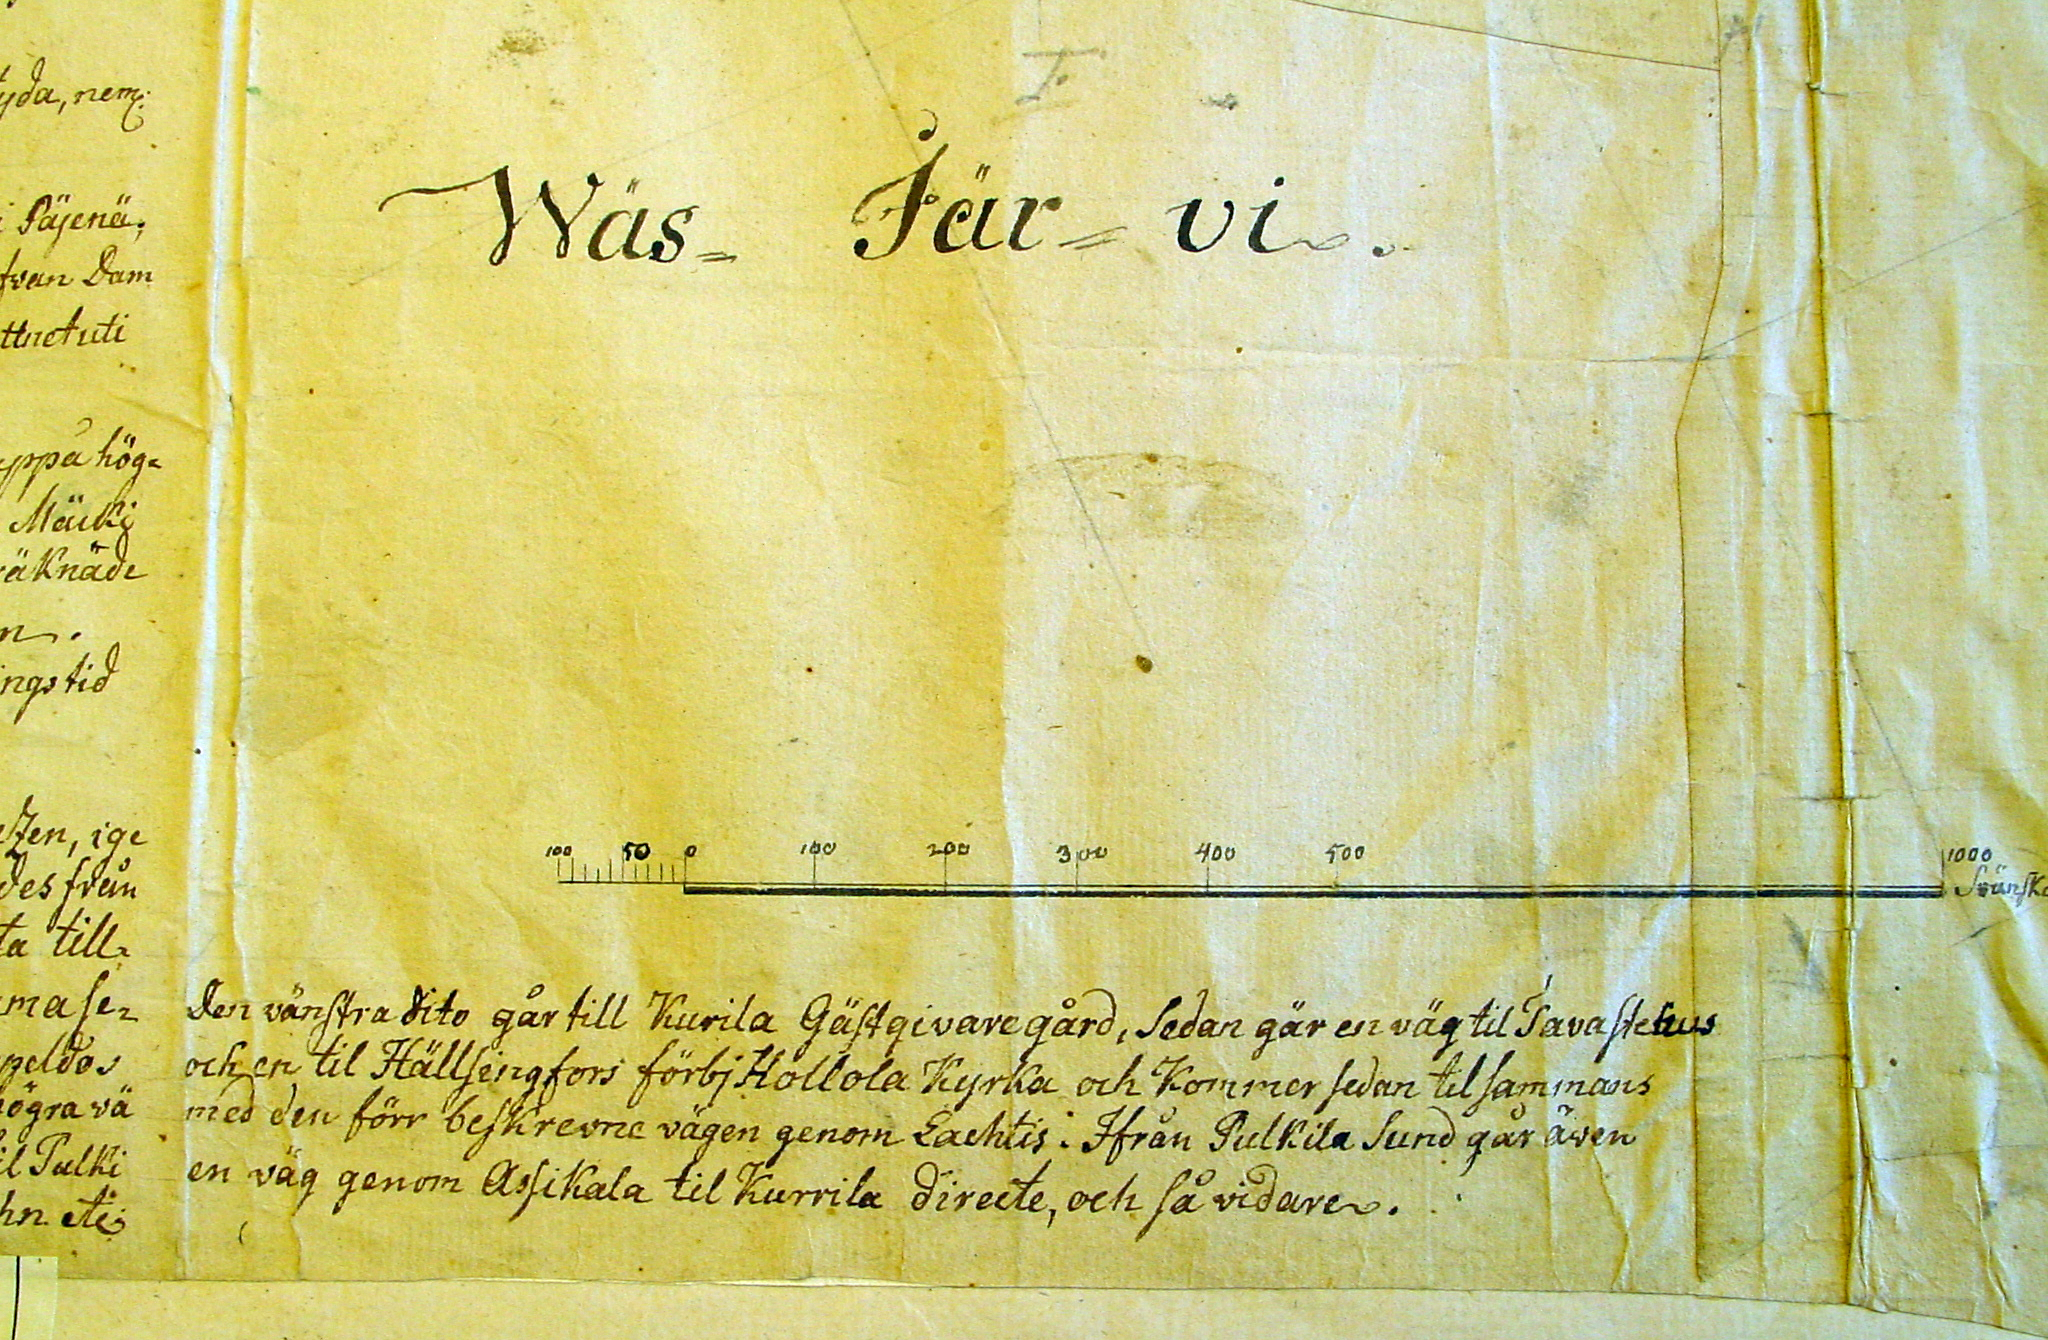 yda, nem:
i Päjenä;
fran Dam
ttnet uti
uppå hög=
Mäcki
räknäde
n.
ings tid
ten, ige
des från
ta till=
ma se=
peldos
högra vä
il Pulki
hn etc;
Wäs= Jär= vi.
100 50 0 100 200 300 400 500 1000
Svänska
Den vänstra dito går till Kurila Gästgivaregård, sedan går en väg til Tavastehus
och en til Hällsingfors förbj Hollola Kyrka och Kommer sedan til sammans
med den förr beskrevne vägen genom Lachtis. Ifrån Pulkila Sund går även
en väg genom Assikala til Kurrila directe, och så vidare.